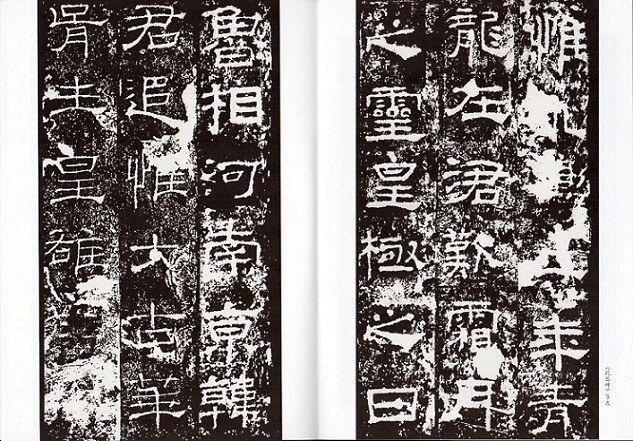 惟年青
龍在涒歎霜月
之靈皇極之日
魯相河南京韓
君追惟大古華
胥生皇雄
《礼器碑》